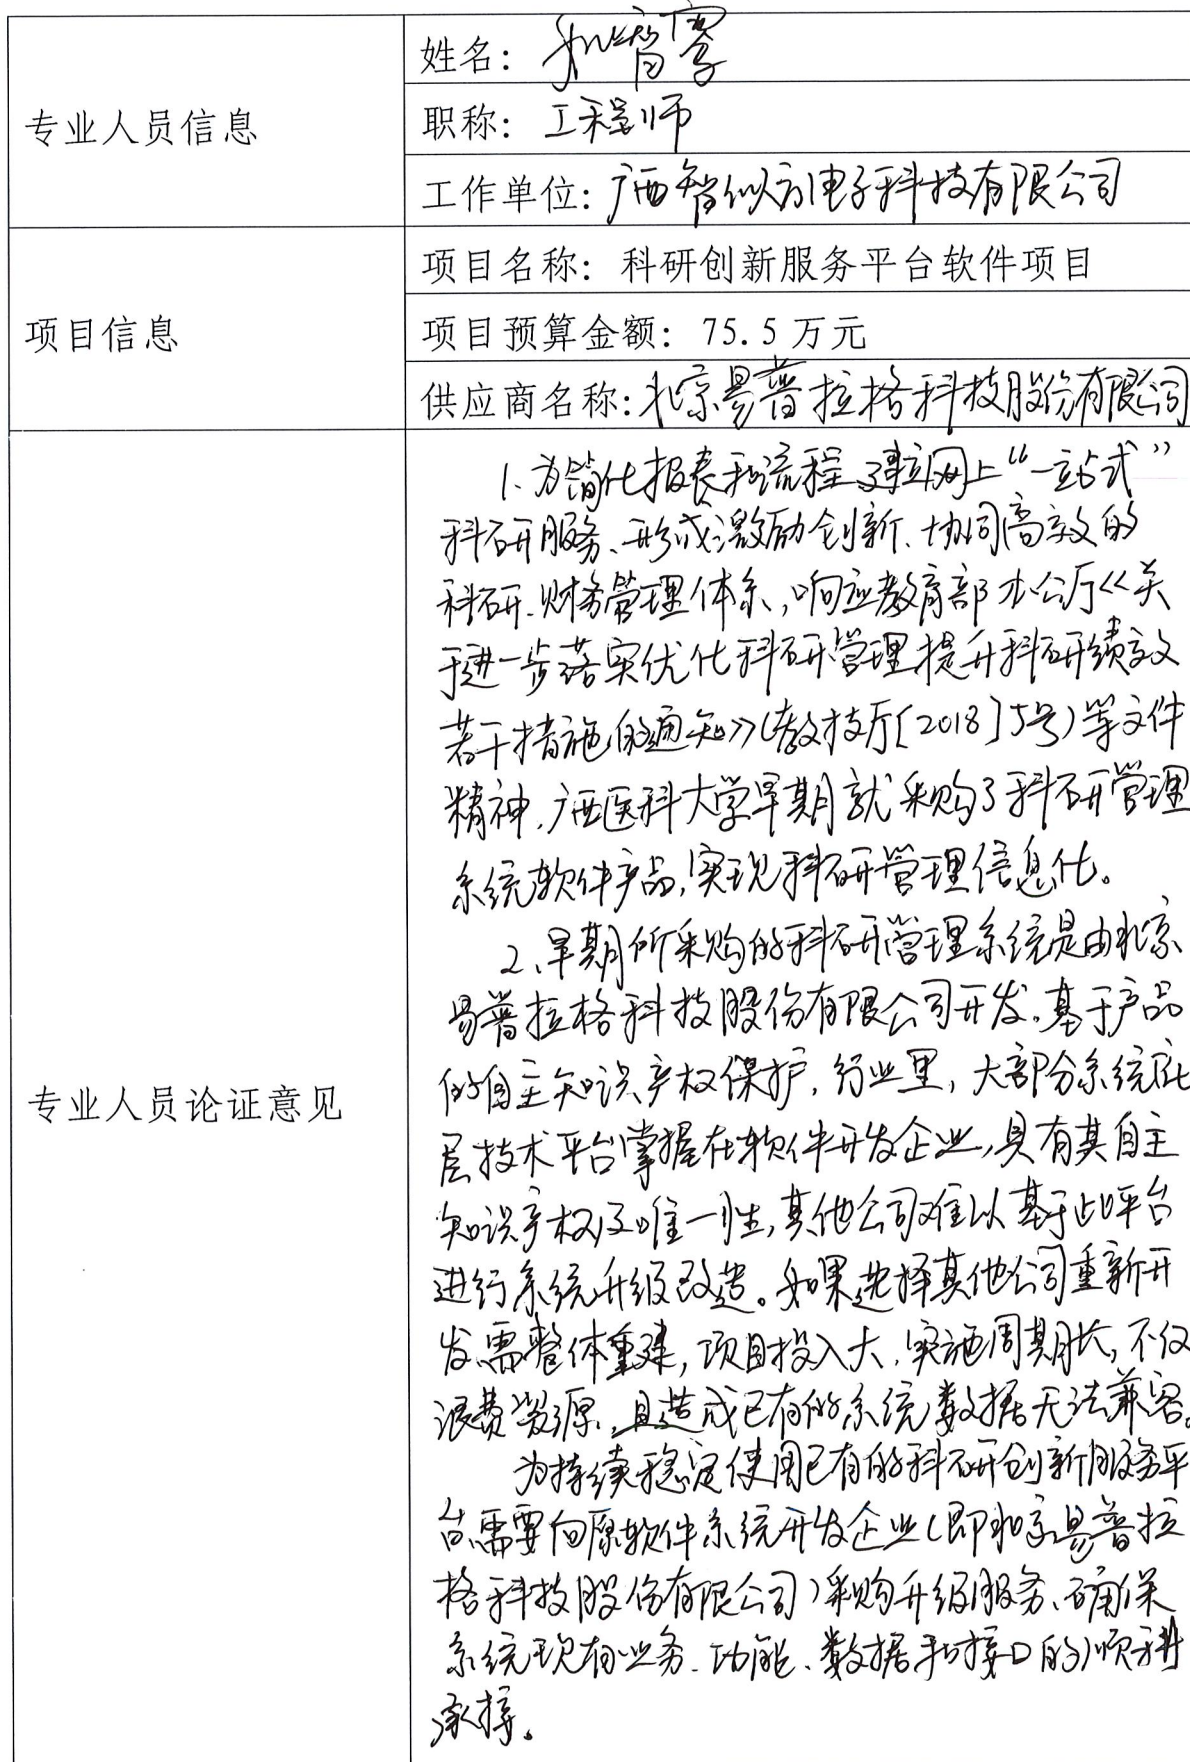 专业人员信息
姓名：
职称：工程师
工作单位：广西智似方电子科技有限公司
项目信息
项目名称：科研创新服务平台软件项目
项目预算金额：75.5万元
供应商名称：北京易普拉格科技股份有限公司
专业人员论证意见
1、为简化报表和流程,建立网上“一站式”
科研服务、形成激励创新、协同高效的
科研、财务管理体系,响应教育部办公厅《关
于进一步落实优化科研管理提升科研绩效
若干措施的通知》(教技厅[2018]5号)等文件
精神,广西医科大学早期就采购了科研管理
系统软件产品,实现科研管理信息化。
2、早期所采购的科研管理系统是由北京
易普拉格科技股份有限公司开发。基于产品
的自主知识产权保护,行业里,大部分系统底
层技术平台掌握在软件开发企业,具有其自主
知识产权及唯一性,其他公司难以基于此平台
进行系统升级改造。如果选择其他公司重新开
发需整体重建,项目投入大,实施周期长,不仅
浪费资源,且造成已有的系统数据无法兼容。
为持续稳定使用已有的科研创新服务平
台需要向原软件系统开发企业(即北京易普拉
格科技股份有限公司)采购升级服务、确保
系统现有业务、功能、数据和接口的顺利
承接。